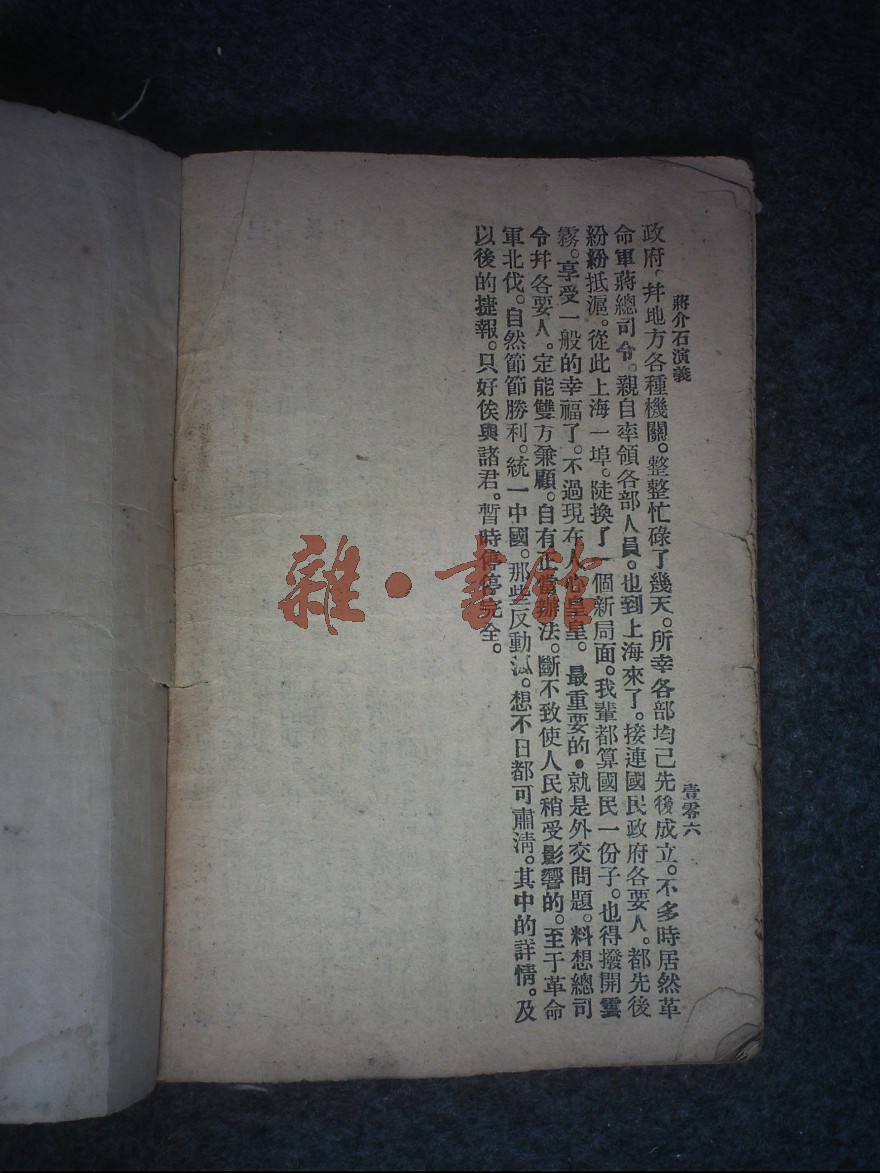 蔣介石演義
壹零六
政府、幷地方各種機關。整整忙碌了幾天。所幸各部均已先後成立。不多時居然革
命軍蔣總司令。親自率領各部人員。也到上海來了。接連國民政府各要人。都先後
紛紛抵滬。從此上海一埠。陡換了一個新局面。我輩都算國民一份子。也得撥開雲
霧。享受一般的幸福了。不過現在人心皇皇。最重要的•就是外交問題。料想總司
令幷各要人。定能雙方兼顧。自有正當辦法。斷不致使人民稍受影響的。至于革命
軍北伐。自然節節勝利。統一中國。那些反動派。想不日都可肅清。其中的詳情。及
以後的捷報。只好俟與諸君。暫時停停完全。
雜·書館